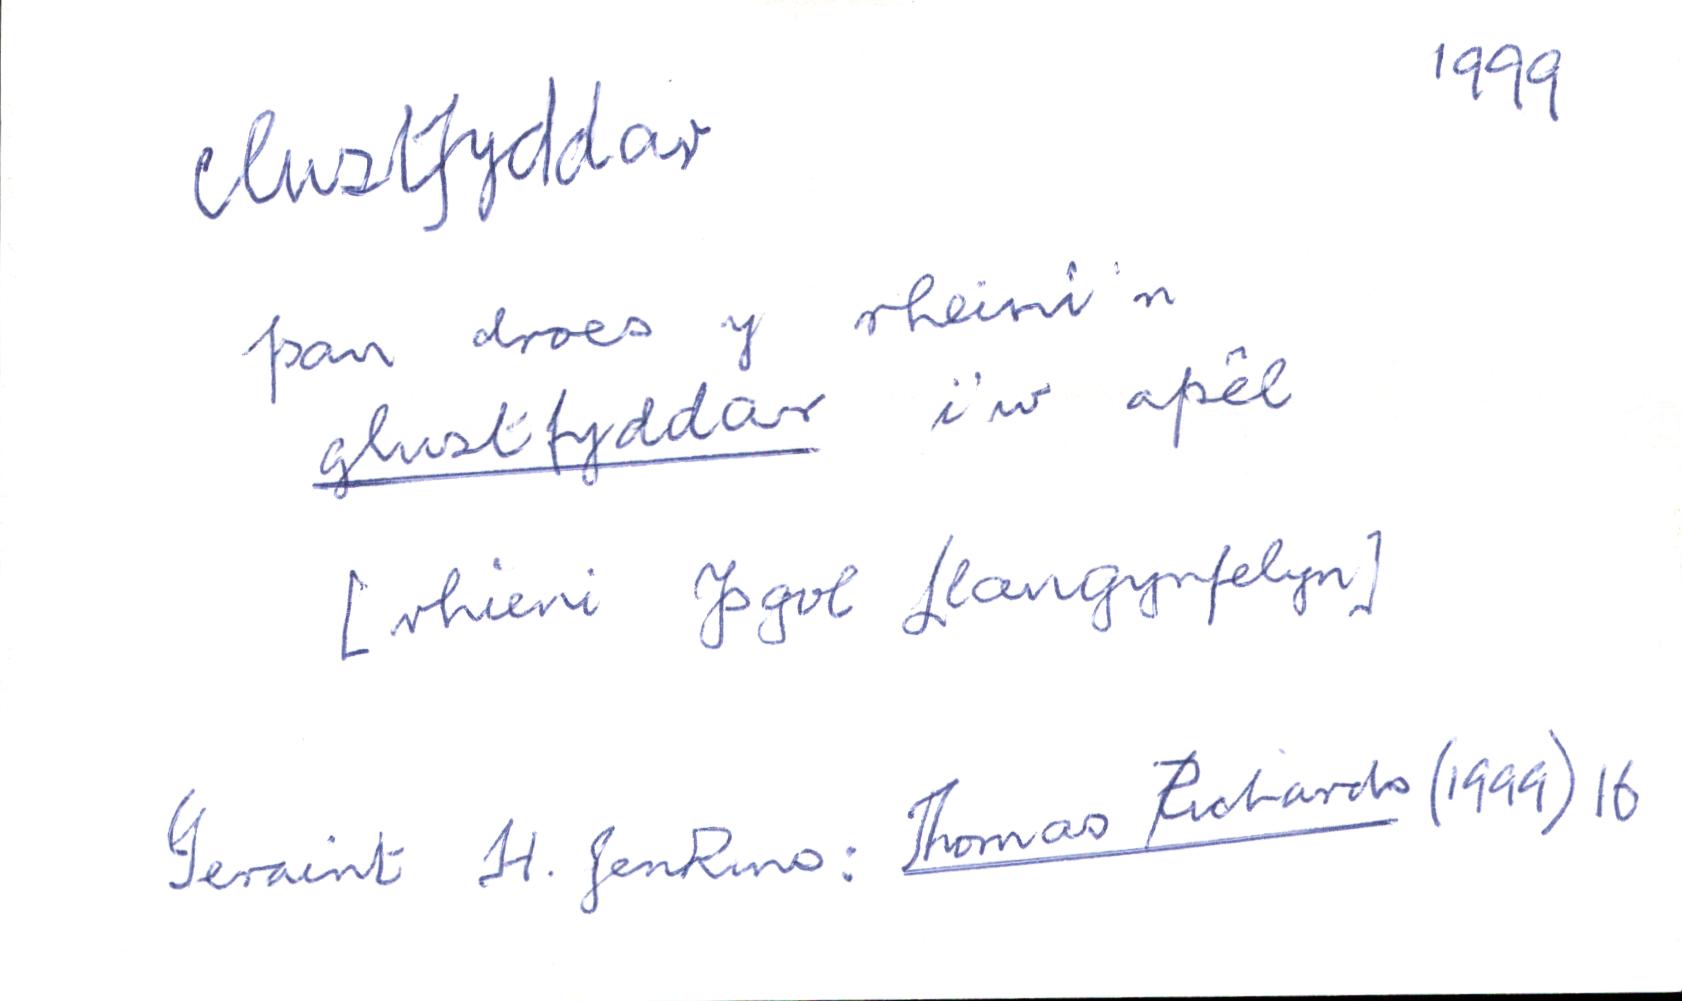 1999
clustfyddar
pan droes y rheini'n
glustfyddar i'w apêl
[rhieni Ysgol Llangynfelyn]
Geraint H. Jenkins: Thomas Richards (1999) 16